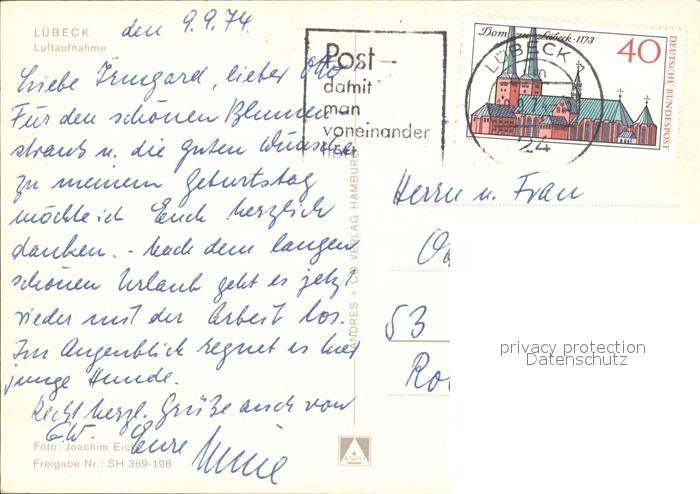 LÜBECK
Luftaufnahme
den 9.9.74.
Liebe Irmgard, lieber Otto
Für den schönen Blumen-
strauß u. die guten Wünsche
zu meinem Geburtstag
möchte ich Euch herzlich
danken. - Nach dem langen
schönen Urlaub geht es jetzt
wieder mit der Arbeit los.
Im Augenblick regnet es hier
junge Hunde.
Recht herzl. Grüße auch von
Eure
Foto: Joachim Eic
Freigabe-Nr.: SH 369-198
ANDRES + CO VERLAG HAMBURG
ANCO
Post-
damit
man
voneinander
hört
LÜBECK
24
Dom zu Lübeck · 1173
40
DEUTSCHE BUNDESPOST
Herrn u. Frau
53
privacy protection
Datenschutz